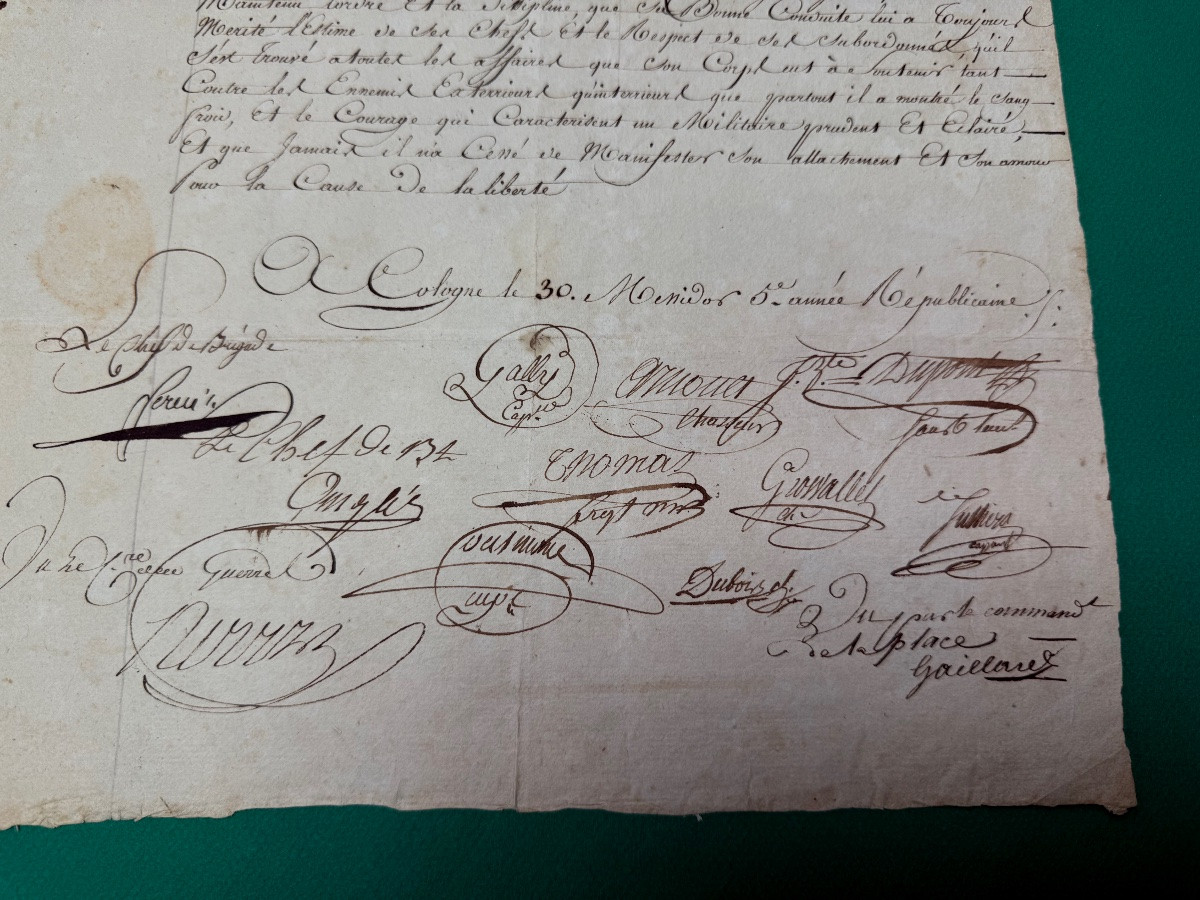 Maintenu l'ordre Et la discipline, que sa Bonne Conduite lui a Toujours
Merité l'Estime de ses Chefs Et le Respect de ses subordonnés, qu'il
s'est trouvé a toutes les affaires que son Corps eut à Soutenir tant
Contre les Ennemis Exterieurs qu'interieurs que partout il a montré le Sang
froid, Et le Courage qui Caracterisent un Militaire prudent Et Eclairé,
Et que Jamais il n'a Cessé de Manifester son attachement Et son amour
Pour la Cause de la liberté
A Cologne le 30. Messidor 5e année Républicaine
Le Chef de Brigade
Gally
Capne
Arnoux
Chasseur
J. Bte Dupont
sous Lieut
Le Chef de Bon
Anglés
Thomas
Sergt Mr
Grosvallet
Vu
Guerre
cape
Dubois
Vu par le commandt
de la place
Gaillard